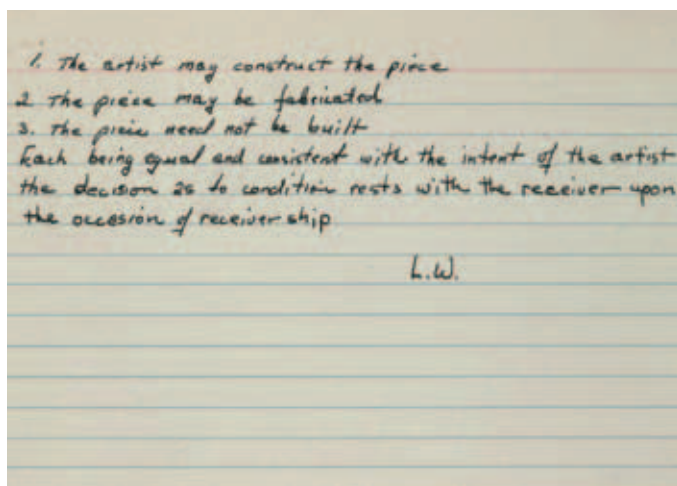 1. The artist may construct the piece
2 The piece may be fabricated
3. The piece need not be built
Each being equal and consistent with the intent of the artist
the decision as to condition rests with the receiver upon
the occasion of receiver ship
L.W.